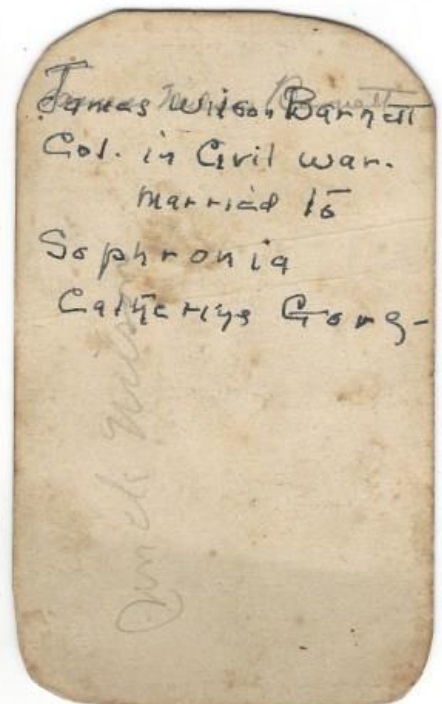 James Wilson Barnett
Col. in Civil war.
married to
Sophronia
Catherine
Uncle Wilson